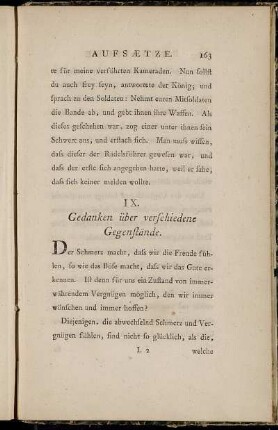 AUFSÆTZE. 163
er für meine verführten Kameraden. Nun sollst
du auch frey seyn, antwortete der König; und
sprach zu den Soldaten: Nehmt euren Mitsoldaten
die Bande ab, und gebt ihnen ihre Waffen. Als
dieses geschehen war, zog einer unter ihnen sein
Schwert aus, und erstach sich. Man muss wissen,
dass dieser der Rädelsführer gewesen war, und
dass der erste sich angegeben hatte, weil er sahe,
dass sich keiner melden wollte.
IX.
Gedanken über verschiedene
Gegenstände.
Der Schmerz macht, dass wir die Freude füh-
len, so wie das Böse macht, dass wir das Gute er-
kennen. Ist denn für uns ein Zustand von immer-
währendem Vergnügen möglich, den wir immer
wünschen und immer hoffen?
Diejenigen, die abwechselnd Schmerz und Ver-
gnügen fühlen, sind nicht so glücklich, als die,
L 2 welche